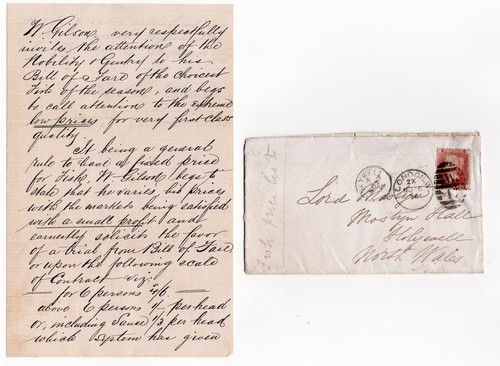 W. Gilson very respectfully
invites the attention of the
Nobility & Gentry to his
Bill of Fare of the choicest
Fish of the season, and begs
to call attention to the extreme
low prices for very first class
quality.
It being a general
rule to have a fixed price
for Fish, W. Gilson begs to
state that he varies his prices
with the markets being satisfied
with a small profit and
earnestly solicits the favor
of a trial from Bill of Fare,
or upon the following scale
of Contract viz:
for 6 persons 4/6
above 6 persons 1/- per head
or, including Sauce 1/3 per head,
which System has given
Fish price list
LONDON
2X
Lord Mostyn
Mostyn Hall
Holywell
North Wales